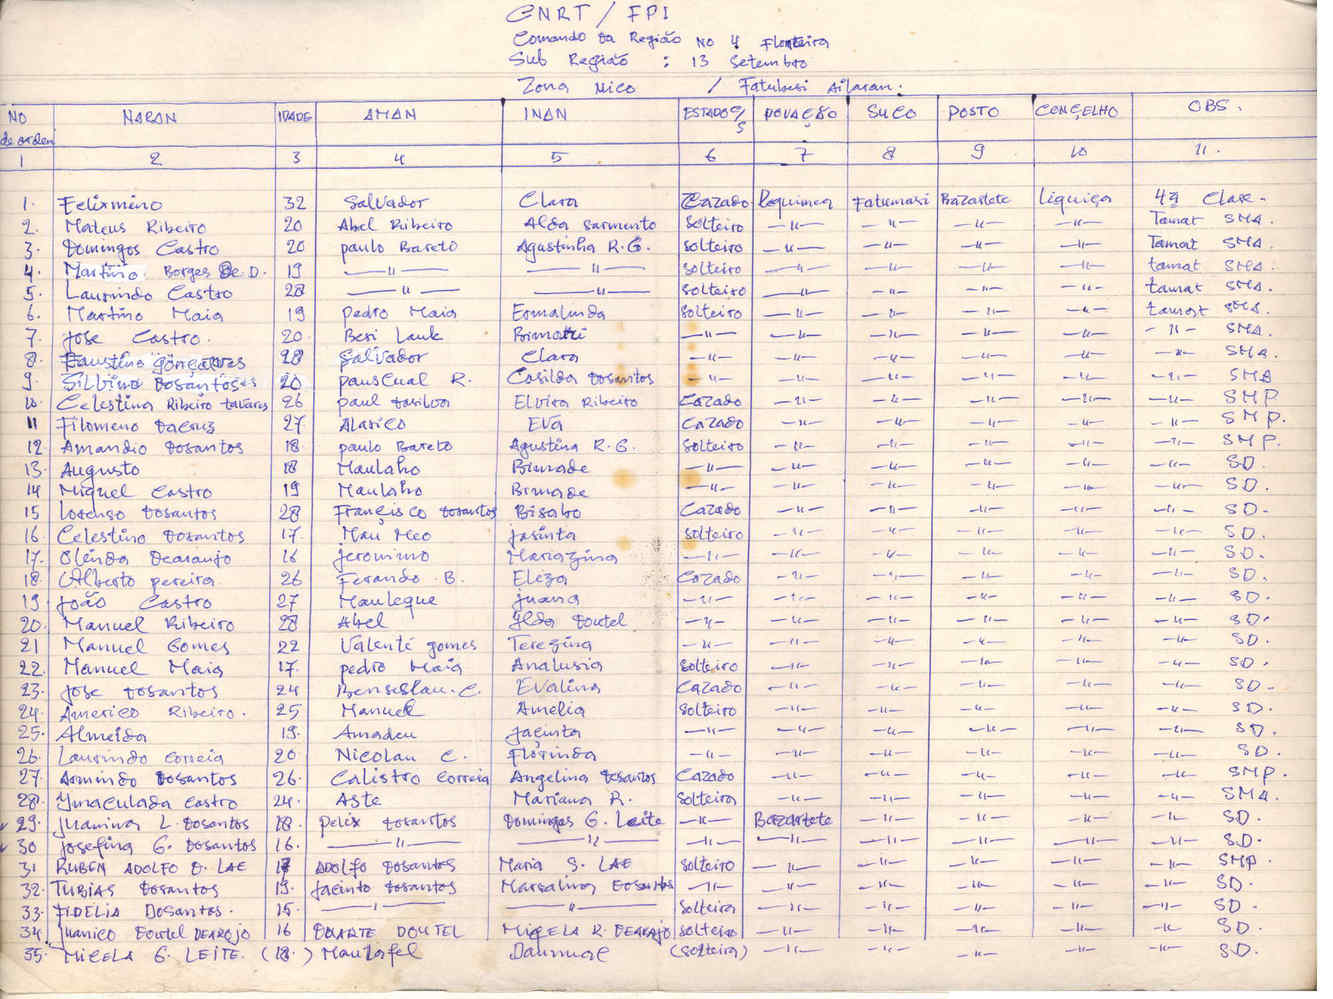 CNRT / FPI
Comando da Região No 4 Flonteira
Sub Região : 13 Setembro
Zona Nico / Fatubesi Ailaran.
No de orden NARAN IDADE AMAN INAN ESTADOS POVAÇÃO SUCO POSTO CONÇELHO OBS.
1 2 3 4 5 6 7 8 9 10 11.
1. Felixmino 32 Salvador Clara Cazado Fatumasi Bazartete Liquiça 4ª Clase.
2. Mateus Ribeiro 20 Abel Ribeiro Alda Sarmento Solteiro —"— —"— —"— —"— Tamat SMA.
3. Domingos Castro 20 paulo Bareto Agustinha R.G. Solteiro —"— —"— —"— —"— Tamat SMA.
4. Martino Borges De D. 19 —"— —"— Solteiro —"— —"— —"— —"— tamat SMA.
5. Laurindo Castro 28 —"— —"— Solteiro —"— —"— —"— —"— tamat SMA.
6. Martino Maia 19 pedro Maia Ermalinda Solteiro —"— —"— —"— —"— tamat SMA.
7. Jose Castro. 20 Besi Lauk —"— —"— —"— —"— —"— —"— SMA.
8. Faustino gonçalves 28 Salvador Clara —"— —"— —"— —"— —"— —"— SMA.
9. Silvino Dosantoses 20 pauscual R. Casilda Dosantos —"— —"— —"— —"— —"— —"— SMA
10. Celestina Ribeiro tavares 26 paul dasilva Elvira Ribeiro Cazado —"— —"— —"— —"— —"— SMP
11 Filomeno Dacruz 27 Alarico Eva Cazado —"— —"— —"— —"— —"— SMP.
12. Amandio Dosantos 18 paulo Bareto Agustina R.G. Solteiro —"— —"— —"— —"— —"— SMP.
13. Augusto 18 Maulaho Birunade —"— —"— —"— —"— —"— —"— SD.
14 Miguel Castro 19 Maulaho Birunade —"— —"— —"— —"— —"— —"— SD.
15 Lorenso Dosantos 28 Françisco Dosantos Bisabo Cazado —"— —"— —"— —"— —"— SD.
16. Celestino Dosantos 17. Mau Meo Jasinta Solteiro —"— —"— —"— —"— —"— SD.
17. Olinda Dearaujo 16 Jeronimo Mariazina —"— —"— —"— —"— —"— —"— SD.
18. Alberto pereira 26 Ferando B. Eliza Cazado —"— —"— —"— —"— —"— SD.
19 João Castro 27 Mauleque Juana —"— —"— —"— —"— —"— —"— SD.
20. Manuel Ribeiro 28 Abel Ylda Doutel —"— —"— —"— —"— —"— —"— SD.
21 Manuel Gomes 22 Valente gomes Terezina —"— —"— —"— —"— —"— —"— SD.
22. Manuel Maia 17. pedro Maia Analusia Solteiro —"— —"— —"— —"— —"— SD.
23. Jose Dosantos 24 Benseslau. C. Evalina Cazado —"— —"— —"— —"— —"— SD.
24. Americo Ribeiro. 25 Manuel Amelia Solteiro —"— —"— —"— —"— —"— SD.
25. Almeida 19. Amadeu Jacinta —"— —"— —"— —"— —"— —"— SD.
26. Laurindo Correia 20 Nicolau C. Florinda —"— —"— —"— —"— —"— —"— SD.
27. Armindo Dosantos 26. Calistro Correia Angelina Dosantos Cazado —"— —"— —"— —"— —"— SMP.
28. Ymaculada Castro 24. Aste Mariana R. Solteira —"— —"— —"— —"— —"— SMA.
29. Juanina L. Dosantos 18. pelix Dosantos Domingas G. Leite —"— Bazartete —"— —"— —"— —"— SD.
30 Josefina G. Dosantos 16. —"— —"— —"— —"— —"— —"— —"— —"— SD.
31 RUBEN ADOLFO D. LAE 17 ADOLFO Dosantos Maria S. LAE Solteiro —"— —"— —"— —"— —"— SMP.
32. TUBIAS Dosantos 19. Jacinto Dosantos Marsalina Dosantos —"— —"— —"— —"— —"— —"— SD.
33. FIDELIA Dosantos. 15. —"— —"— Solteira —"— —"— —"— —"— —"— SD.
34 Juanico Doutel DEAROJO 16 DUARTE DOUTEL MIQELA R. DEARAJO Solteiro —"— —"— —"— —"— —"— SD.
35. MICELA G. LEITE. (18.) Maulafel (Solteira) —"— —"— —"— —"— —"— SD.